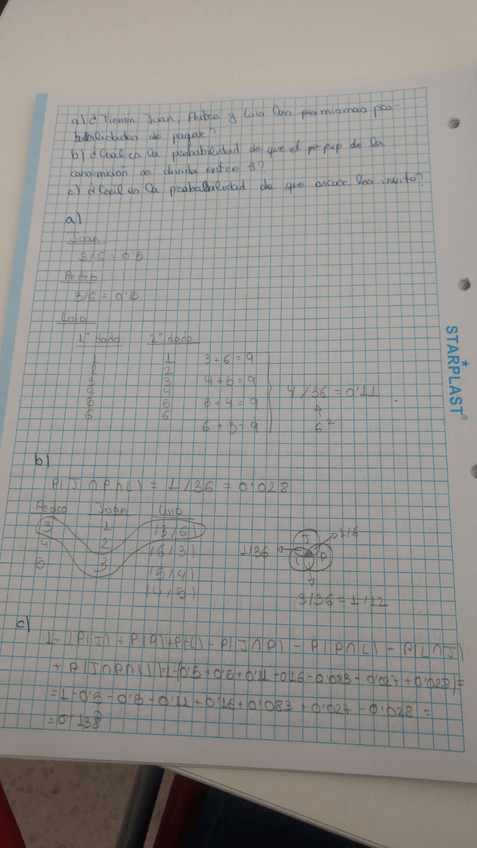 a) ¿Tienen Joan, Pedro y Luis las mismas pro-
babilidades de pagar?
b) ¿Cuál es la probabilidad de que el de la
consumición se divida entre 3?
c) ¿Cuál es la probabilidad de que oscar los invite?
a)
Joan
3/6 = 0'5
Pedro
3/6 = 0'5
Luis
1º dado 2º dado
1 1 3+6=9
2 2
3 3 4+5=9
4 4 4/36=0'11
5 5 5+4=9 4
6 6 6+3=9 6²
b)
P(J∩P∩L) = 1/36 = 0'028
Pedro Joan Luis
3 1 (3/6)
4 2 (6/3)
5 3 (5/4)
(4/5)
1/36 J P L 1/6
3/36=1/12
c)
1-(P(J)+P(P)+P(L)-P(J∩P)-P(P∩L)-P(L∩J)
+P(J∩P∩L))=1-(0'5+0'5+0'11-0'16-0'083-0'027+0'028)=
=1-0'5-0'5-0'11+0'16+0'083+0'027-0'028=
=0'138
STARPLAST